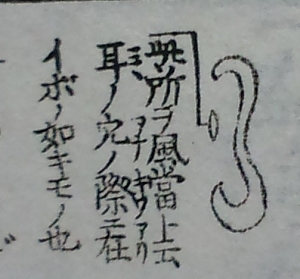 此所ヲ風當上云
耳ノ穴ノ際ニ在
イボノ如キモノ也